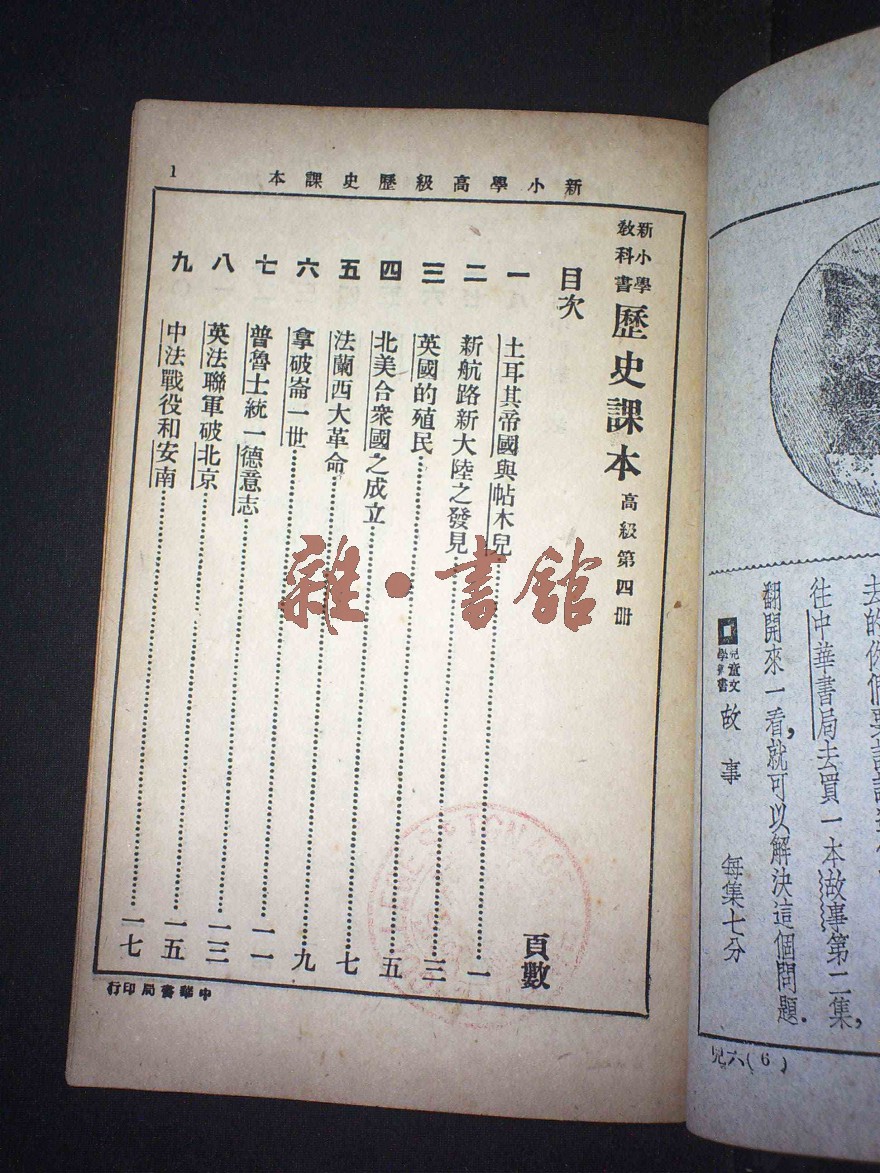 新小學高級歷史課本
1
新小學
教科書
歷史課本
高級第四冊
目次
頁數
一 土耳其帝國與帖木兒 一
二 新航路新大陸之發見 三
三 英國的殖民
四 北美合衆國之成立 五
五 法蘭西大革命 七
六 拿破崙一世 九
七 普魯士統一德意志 一一
八 英法聯軍破北京 一三
九 中法戰役和安南 一五
一七
中華書局印行
雜·書館
往中華書局去買一本故事第二集,
翻開來一看,就可以解決這個問題.
兒童文
學
書
故事 每集七分
(6)六兒